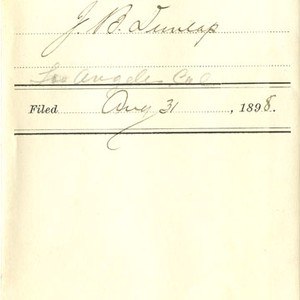 J. B. Dunlap
Los Angeles Cal
Filed Aug 31, 1898.